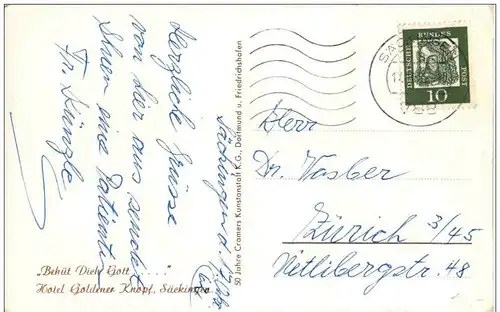 Herzliche Grüsse
von hier aus sendet
Ihnen eine Patientin
Fr. Künzle
Säckingen
„Behüt Dich Gott . . . . .”
Hotel Goldener Knopf, Säckingen
50 Jahre Cramers Kunstanstalt K.G., Dortmund u. Friedrichshafen
DEUTSCHE BUNDESPOST
10
Herr
Dr. Vasber
Zürich 3/45
Uetlibergstr. 48